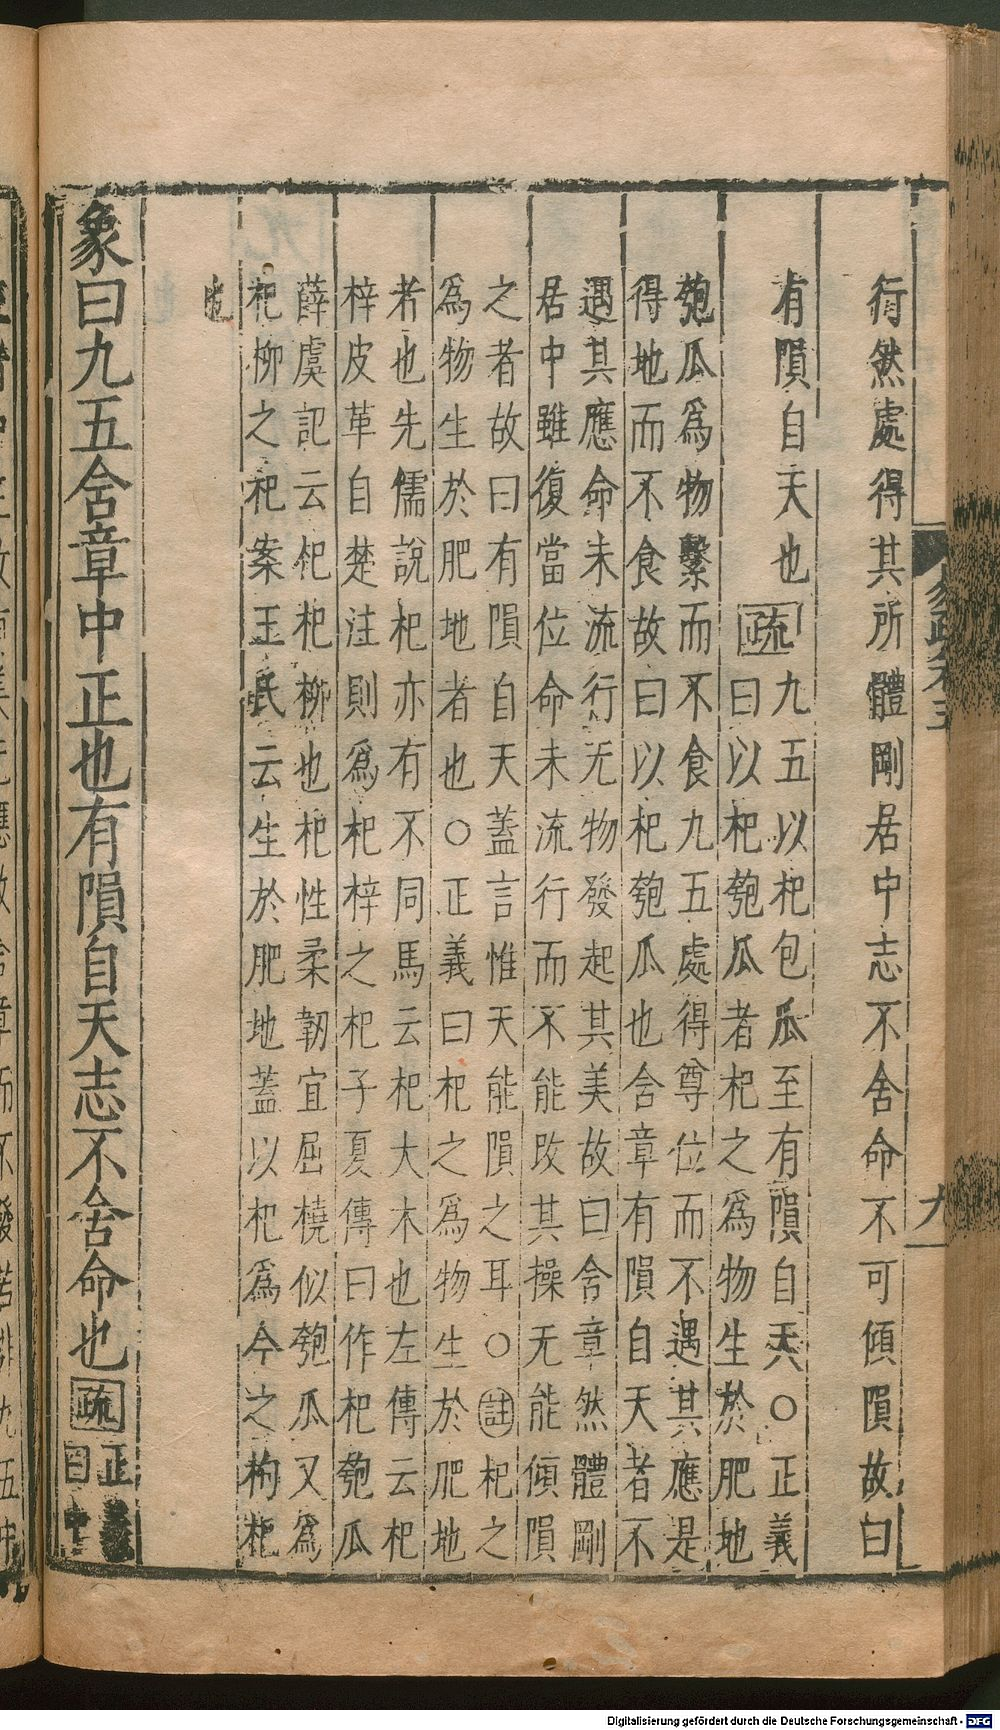 易疏卷五
九
行然處得其所體剛居中志不舍命不可傾隕故曰
有隕自天也疏九五以杞包瓜至有隕自天○正義
曰以杞匏瓜者杞之爲物生於肥地
匏瓜爲物繫而不食九五處得尊位而不遇其應是
得地而不食故曰以杞匏瓜也舍章有隕自天者不
遇其應命未流行无物發起其美故曰舍章然體剛
居中雖復當位命未流行而不能改其操无能傾隕
之者故曰有隕自天蓋言惟天能隕之耳○註杞之
爲物生於肥地者也○正義曰杞之爲物生於肥地
者也先儒說杞亦有不同馬云杞大木也左傳云杞
梓皮革自楚注則爲杞梓之杞子夏傳曰作杞匏瓜
薛虞記云杞杞柳也杞性柔韌宜屈橈似匏瓜又爲
杞柳之杞案王氏云生於肥地蓋以杞爲今之枸杞
也
象曰九五舍章中正也有隕自天志不舍命也疏正義
曰
Digitalisierung gefördert durch die Deutsche Forschungsgemeinschaft - DFG